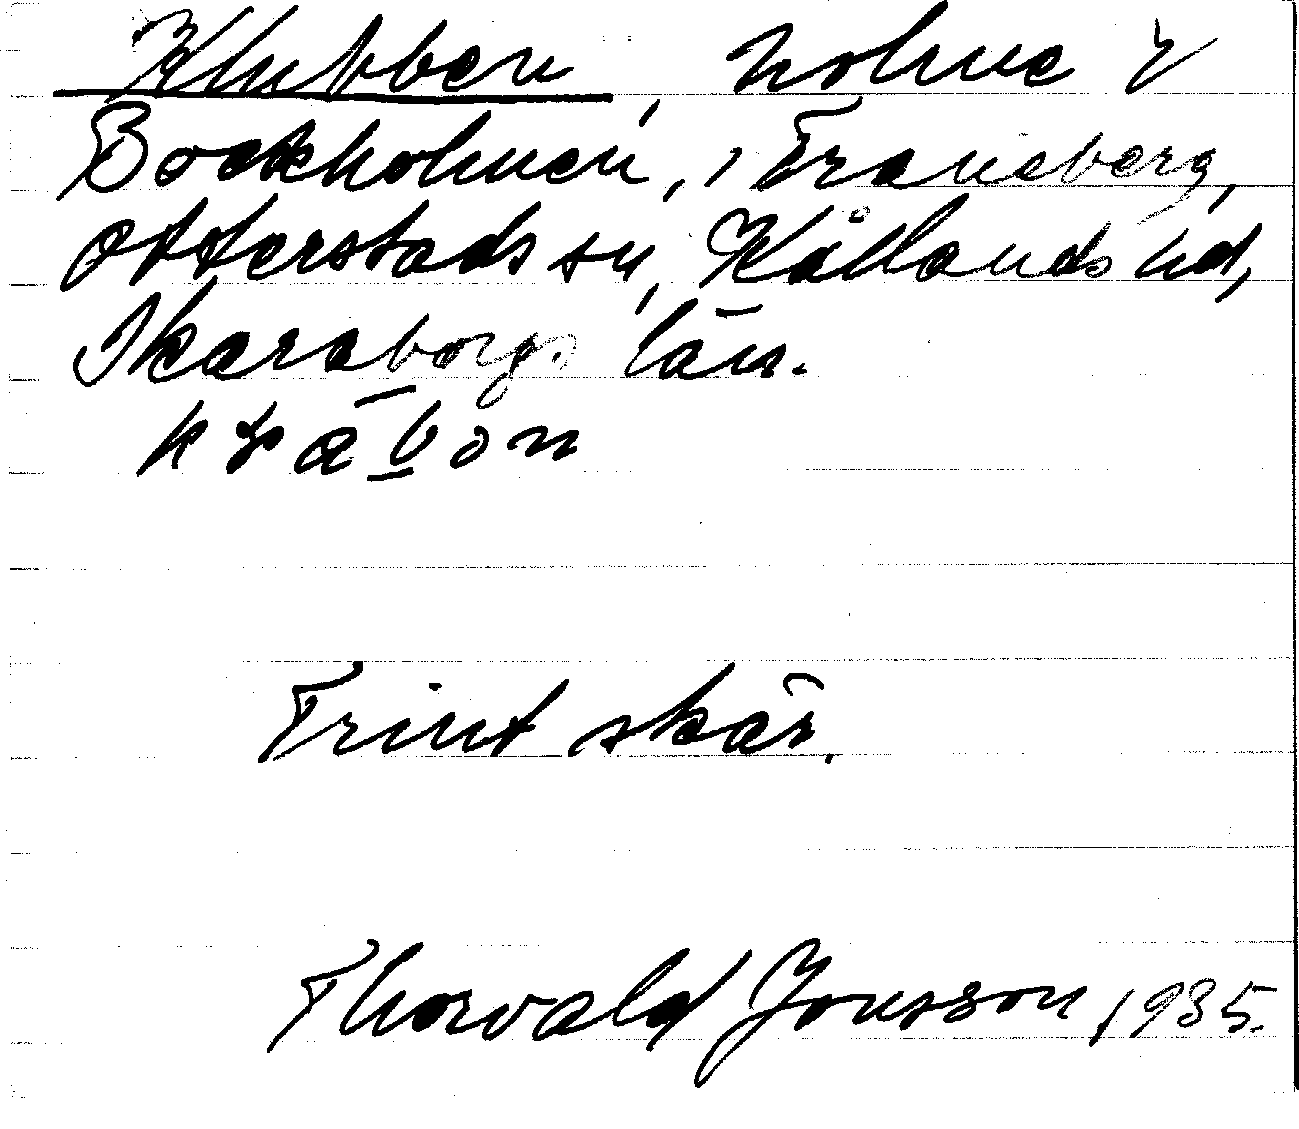 Klubben, holme v
Bockholmen, i Traneberg,
Otterstads sn, Kållands hd,
Skaraborgs län.
Trint skär.
Thorvald Jonsson, 1935.